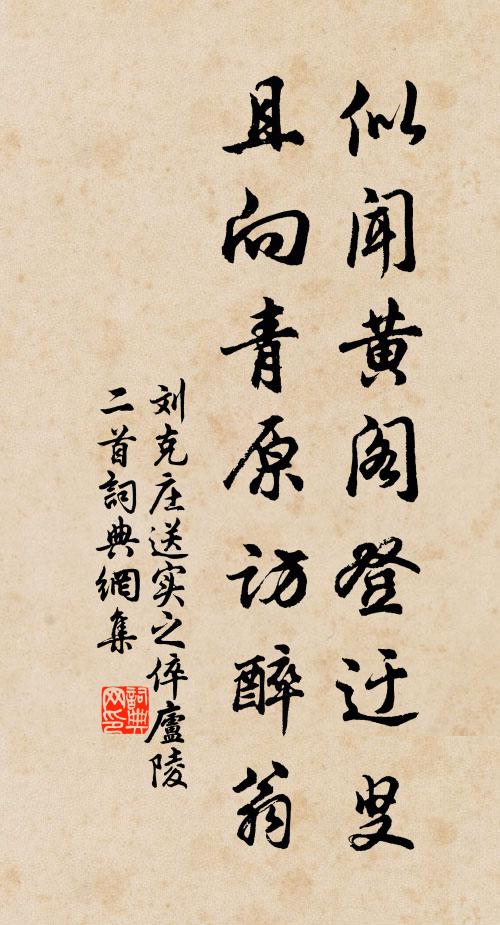 似闻黄阁登迂叟
且向青原访醉翁
刘克庄送实之倅廬陵
二首詞典網集
詞典
网印